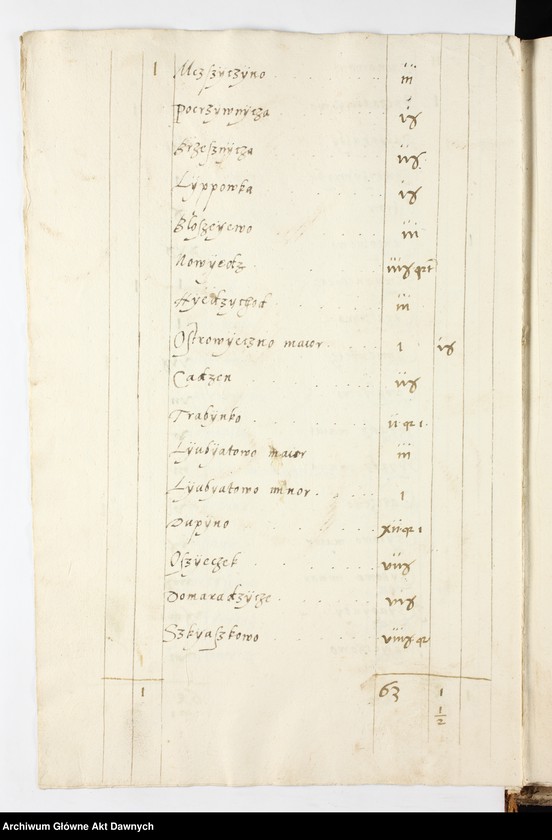 1 Mczszyczyno . . . . . . iii
Poerzywnycza . . . . iꝸ
Brzesznycza . . . . iiꝸ
Lyppowka . . . . iꝸ
Bloszeyewo . . . . iii
Nowyecz . . . . iiiꝸ qrt
Hyedzychod . . . . iii
Ostrowyeczno maior . . . . 1 iꝸ
Cadzen . . . . iiꝸ
Trabynko . . . . ii qr 1
Lyubyatowo maior iii
Lyubyatowo minor . . . . 1
Dupyno . . . . xii qr 1
Oszyeczek . . . . viiꝸ
Domaradzycze . . . . viiꝸ
Szkyaszkowo . . . . viiiꝸ qr
1 63 1
1/2
Archiwum Główne Akt Dawnych